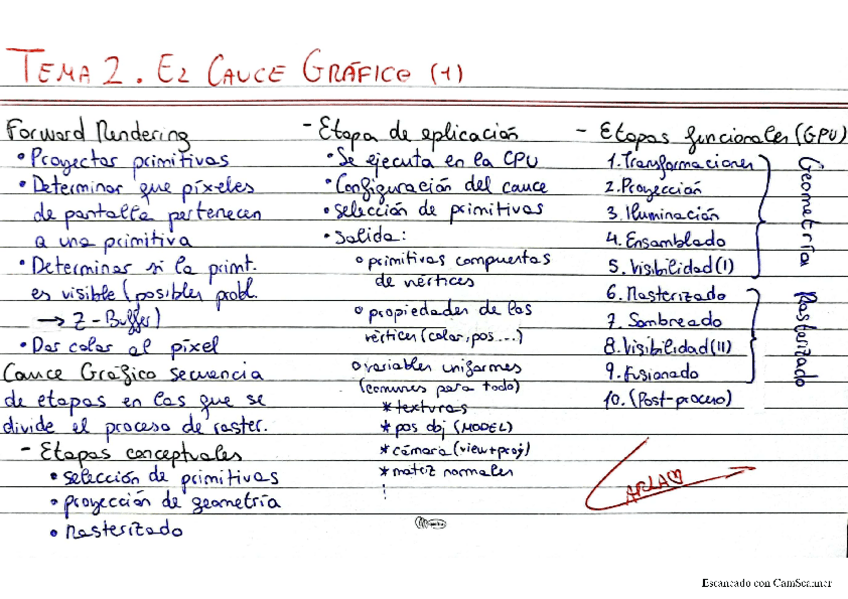 TEMA 2. EL CAUCE GRÁFICO (1)
Forward Rendering
• Proyectar primitivas
• Determinar que píxeles
de pantalla pertenecen
a una primitiva
• Determinar si la primt.
es visible (posibles probl.
→ Z-Buffer)
• Dar color al píxel
Cauce Gráfico secuencia
de etapas en las que se
divide el proceso de raster.
- Etapas conceptuales
• selección de primitivas
• proyección de geometría
• Rasterizado
- Etapa de aplicación
• Se ejecuta en la CPU
• Configuración del cauce
• selección de primitivas
• Salida:
o primitivas compuestas
de vértices
o propiedades de los
vértices (color, pos...)
o variables uniformes
(comunes para todo)
* texturas
* pos obj (MODEL)
* cámara (view+proj)
* matriz normales
⋮
- Etapas funcionales (GPU)
1. Transformaciones
2. Proyección
3. Iluminación
4. Ensamblado
5. Visibilidad (I)
6. Rasterizado
7. Sombreado
8. Visibilidad (II)
9. Fusionado
10. (Post-proceso)
Geometría
Rasterizado
CARLA
Escaneado con CamScanner